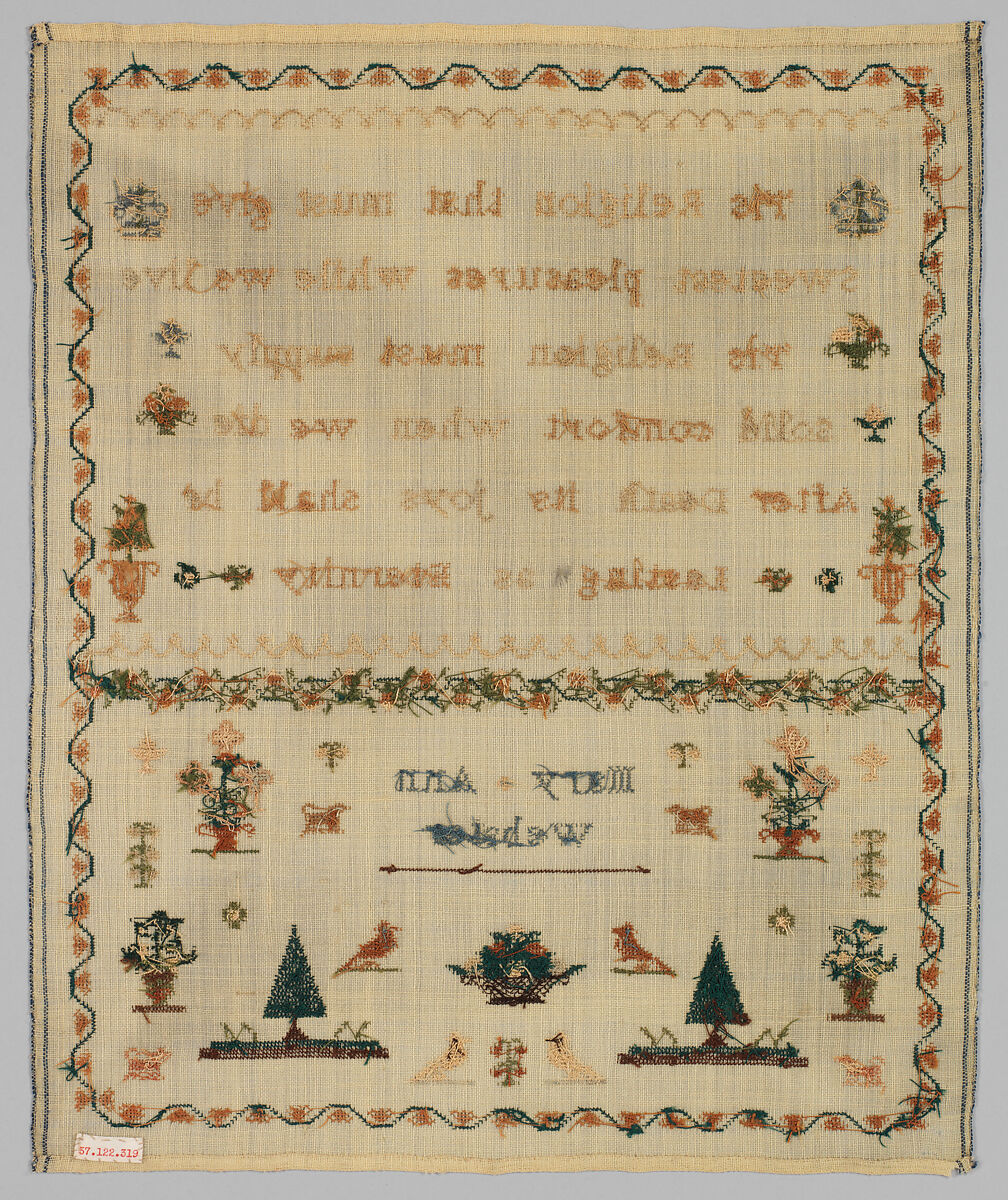 Tis Religion that must give
Sweetest pleasures while we live
Tis Religion must supply
Solid comfort when we die
After Death its joys shall be
Lasting as Eternity
Mary - Ann
57.122.319